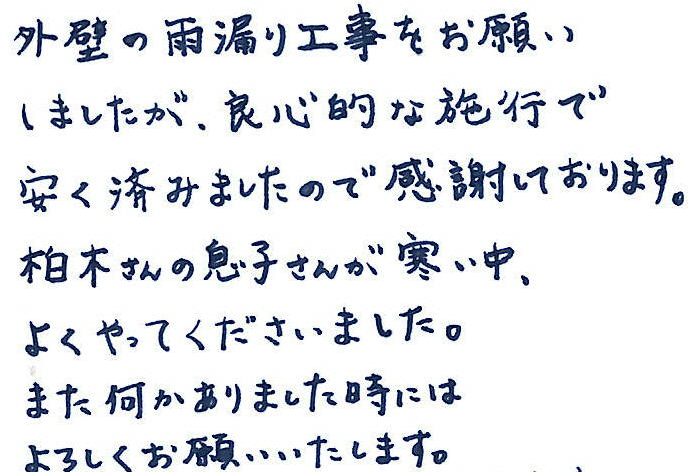 外壁の雨漏り工事をお願い
しましたが、良心的な施行で
安く済みましたので感謝しております。
柏木さんの息子さんが寒い中、
よくやってくださいました。
また何かありました時には
よろしくお願いいたします。